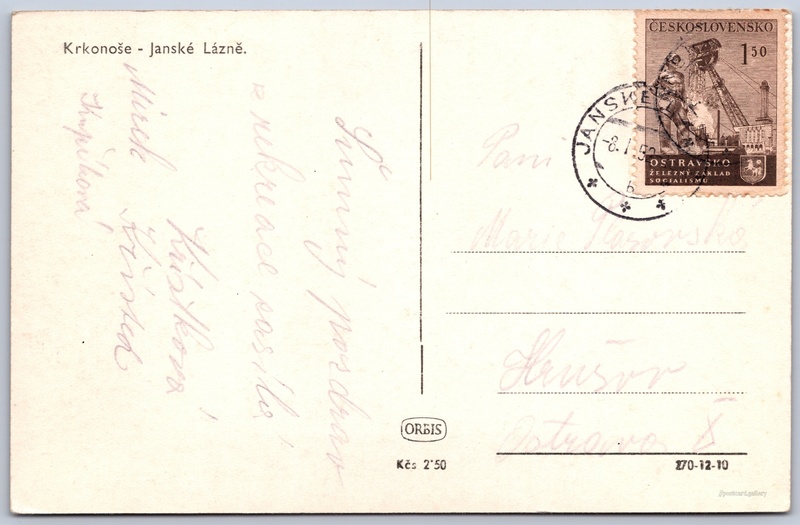 Krkonoše - Janské Lázně.
Srdečný pozdrav
z rekreace zasílá
Křístková
Mirek Křístek
Krupíková
ČESKOSLOVENSKO
1 50
OSTRAVSKO
ŽELEZNÝ ZÁKLAD
SOCIALISMU
JANSKÉ
-8.I.52
b
Paní
Marie
Hrušov
Ostrava X
ORBIS
Kčs 2˙50
270-12-10